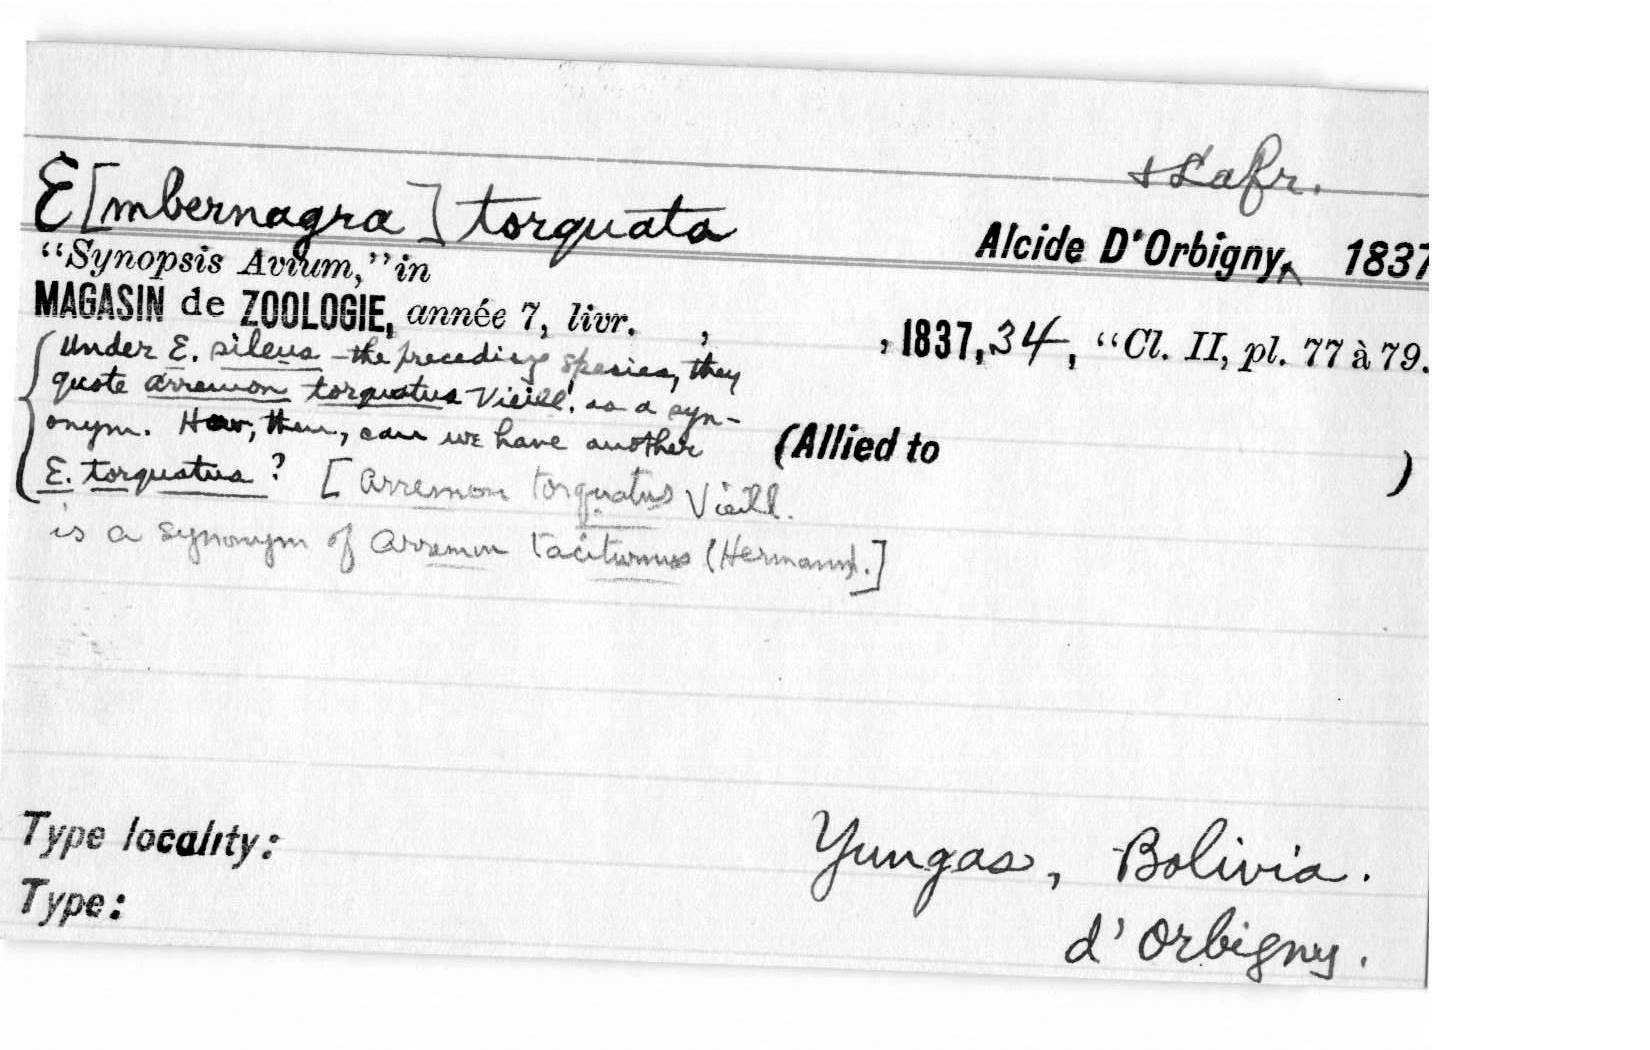 & Lafr.
E[mbernagra] torquata
Alcide D'Orbigny, ^ 1837
"Synopsis Avium," in
MAGASIN de ZOOLOGIE, année 7, livr. , , 1837, 34, "Cl. II, pl. 77 à 79.
{Under E. sileus – the preceding species, they
quote Arremon torquatus Vieill! as a syn-
onym. How, then, can we have another
E. torquatus? [Arremon torquatus Vieill.
(Allied to )
is a synonym of Arremon taciturnus (Hermann).]
Type locality: Yungas, Bolivia.
Type: d'Orbigny.